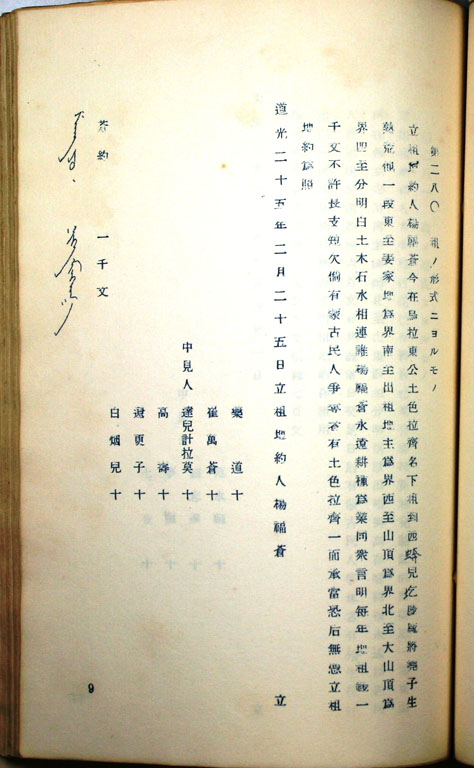 第二八〇 租ノ形式ニヨルモノ
立租地約人楊福蒼今在烏拉東公土色拉齊名下租到西蜂兒圪陟厫將堯子生
熟荒地一段東至姜家地爲界南至出租地主爲界西至山頂爲界北至大山頂爲
界四至分明白土木石水相連誰楊福蒼永遠耕種爲業同衆言明每年地租錢一
千文不許長支短欠倘有蒙古民人爭奪者有土色拉齊一面承當恐后無憑立租
地約爲照
道光二十五年二月二十五日立租地約人楊福蒼 立
欒道十
崔萬蒼十
中見人 達兒計拉莫十
高壽十
更子十
白烟兒十
茶約 一千文
9